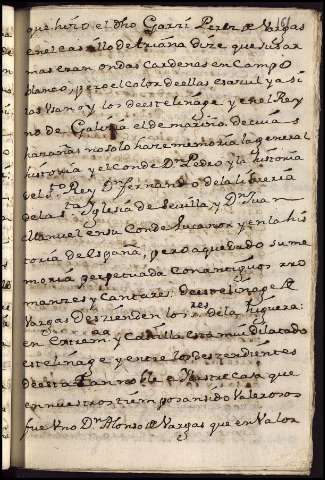 que hirio el dho Garsi Perez de Vargas
en el castillo de triana dize que sus ar
mas eran ondas Cardenas en campo
blanco, pero el color de ellas es azul y asi
las usan oy los de este linage. y en el Rey
no de Galicia el de mariña de cuias
hazañas no solo haze memoria la general
historia y el conde Dn. Pedro y la historia
del Sto. Rey Dn. fernando de la libreria
de la Sta. Iglesia de Sevilla y Dn. Juan
Manuel en su Conde Lucanor y en la his
toria de España, pero a quedado su me
moria perpetuada con antiguos rro
manzes y Cantares: de este linage de
Vargas Deszienden los res de la higuera:
en Extrem.ra y Castilla es tan mui dilatado
este linage y entre los deszendientes
de esta tan noble e Ilustre Casa que
en nuestros tiempos an sido Valerosos
fue Uno Dn. Alonso de Vargas que en Valor